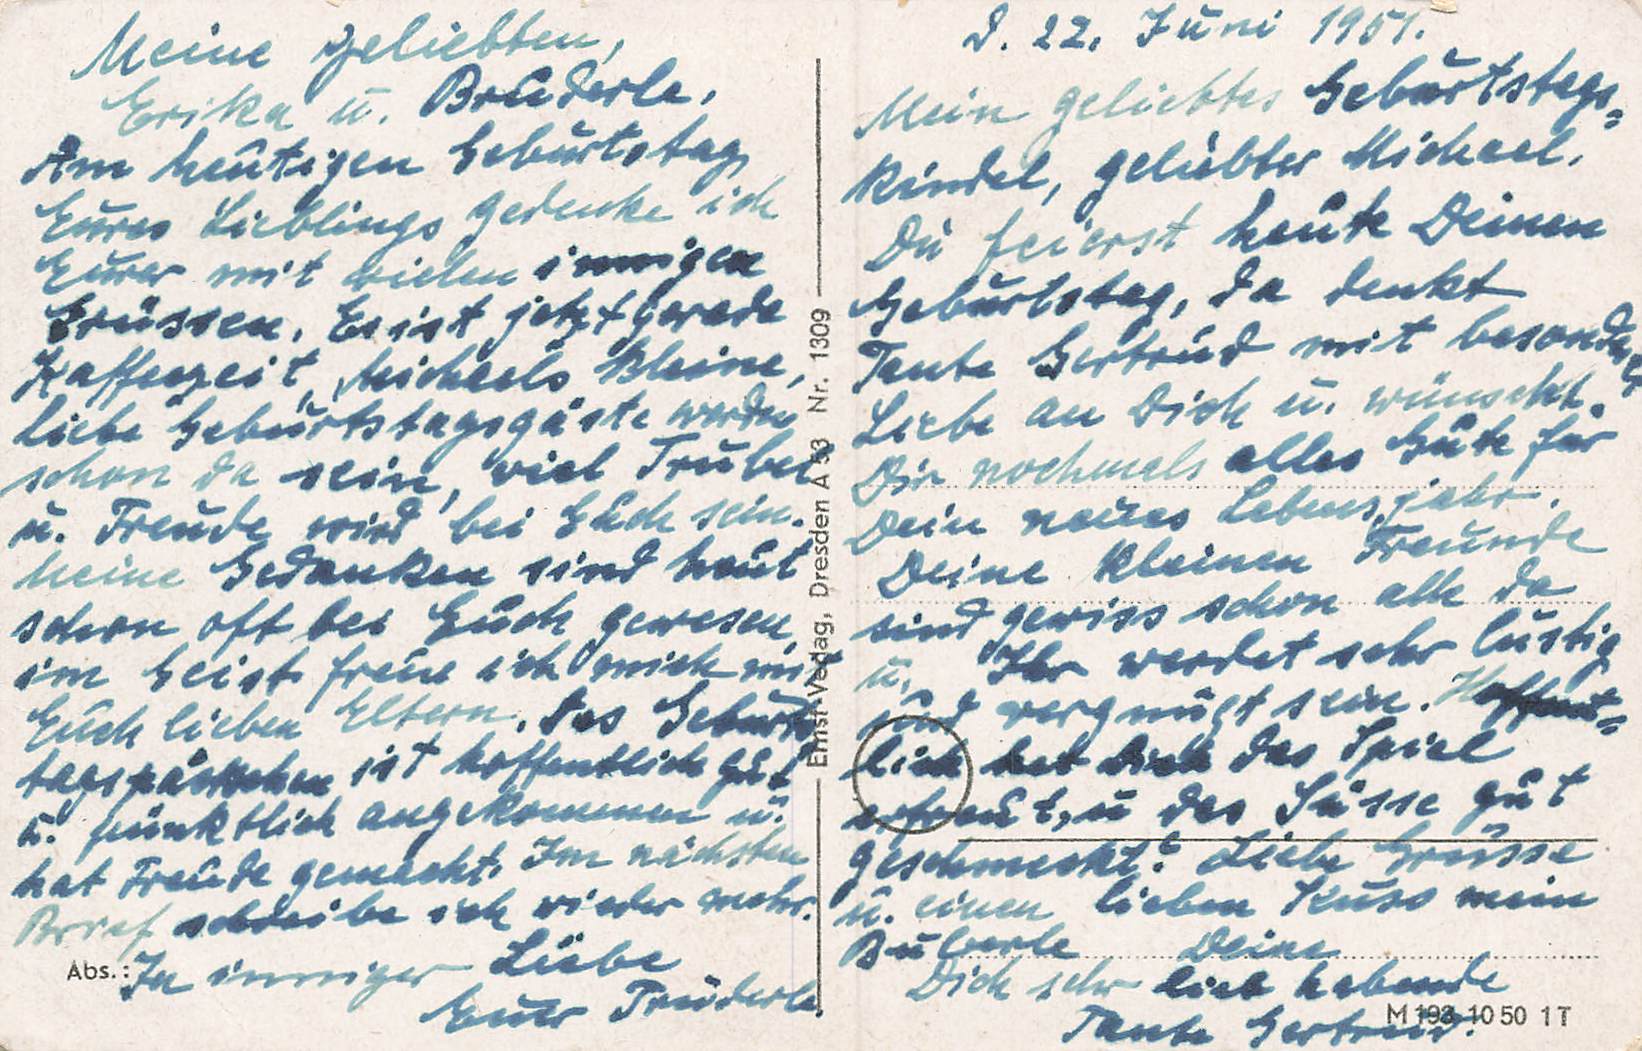 Meine geliebten,
Erika u. Brüderle,
Am heutigen Geburtstag
Eures Lieblings gedenke ich
Eurer mit vielen innigen
Grüssen. Es ist jetzt gerade
Kaffeezeit, Michaels kleine,
liebe Geburtstagsgäste werden
schon da sein, viel Trubel
u. Freude wird bei Euch sein.
Meine Gedanken sind heut
schon oft bei Euch gewesen,
im Geist freue ich mich mit
Euch lieben Eltern. Das Geburts
tagspäckchen ist hoffentlich gut
u. pünktlich angekommen u.
hat Freude gemacht. Im nächsten
Brief schreibe ich wieder mehr.
Abs.: In inniger Liebe
Euer Trüderle.
Ernst Verlag, Dresden A 53 Nr. 1309
D. 22. Juni 1951.
Mein geliebtes Geburtstags-
kindel, geliebter Michael.
Du feierst heute Deinen
Geburtstag, da denkt
Tante Gertrud mit besonderer
Liebe an Dich u. wünscht
Dir nochmals alles Gute für
Dein neues Lebensjahr.
Deine kleinen Freunde
sind gewiss schon alle da
u. Ihr werdet sehr lustig
und vergnügt sein. Hoffent-
lich hat Dich das Spiel
erfreut, u das Süsse gut
geschmeckt? Liebe Grüsse
u. einen lieben Kuss mein
Büberle Deine
Dich sehr lieb habende
Tante Gertrud.
M 193 10 50 1T